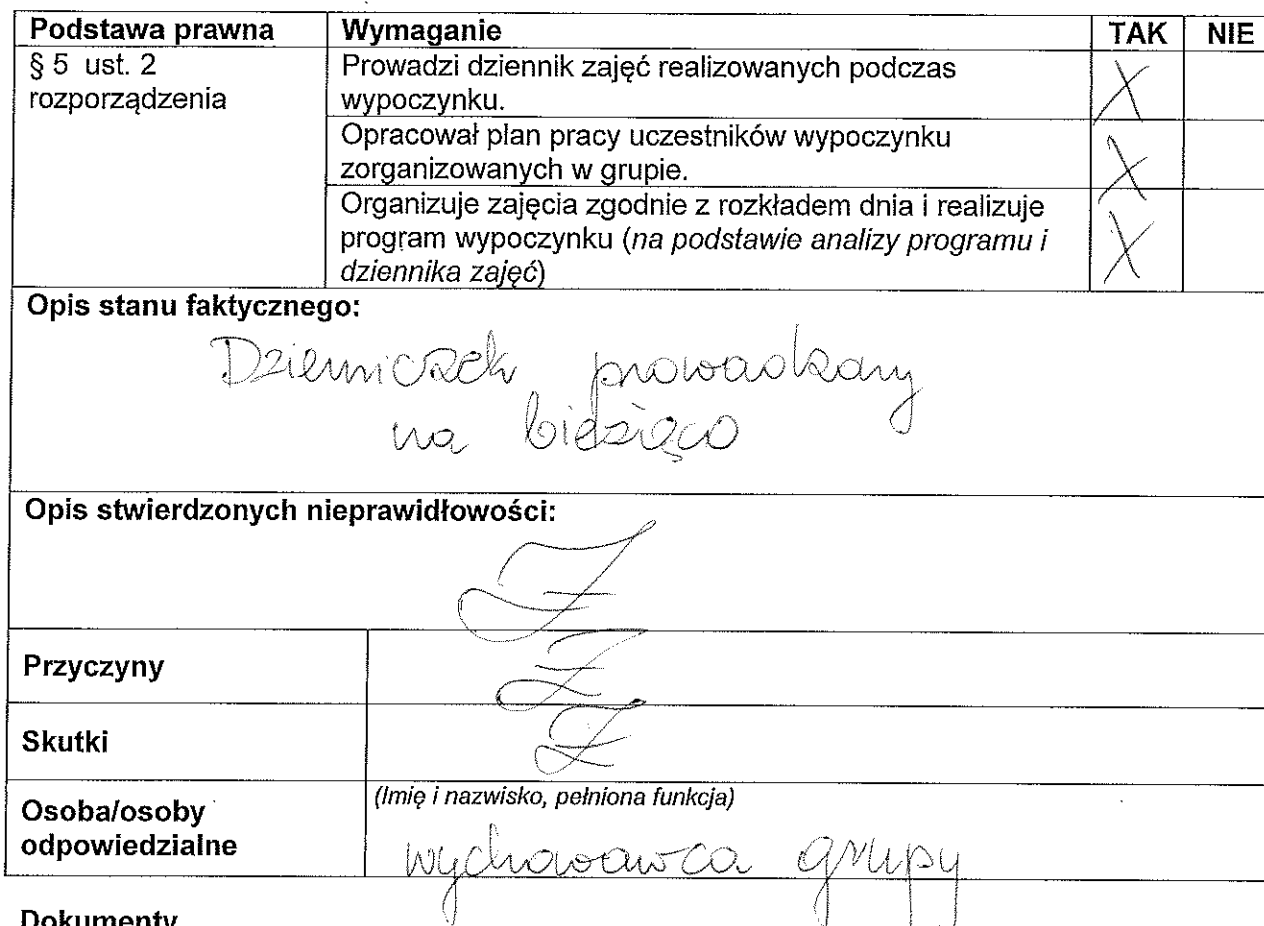 Podstawa prawna Wymaganie TAK NIE
§ 5 ust. 2 Prowadzi dziennik zajęć realizowanych podczas
rozporządzenia wypoczynku. X
Opracował plan pracy uczestników wypoczynku
zorganizowanych w grupie. X
Organizuje zajęcia zgodnie z rozkładem dnia i realizuje
program wypoczynku (na podstawie analizy programu i X
dziennika zajęć)
Opis stanu faktycznego:
Dzienniczek prowadzony
na bieżąco
Opis stwierdzonych nieprawidłowości:
Przyczyny
Skutki
Osoba/osoby (Imię i nazwisko, pełniona funkcja)
odpowiedzialne wychowawca grupy
Dokumenty